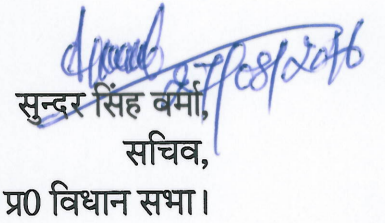 27/08/2016
सुन्दर सिंह वर्मा,
सचिव,
प्र0 विधान सभा।